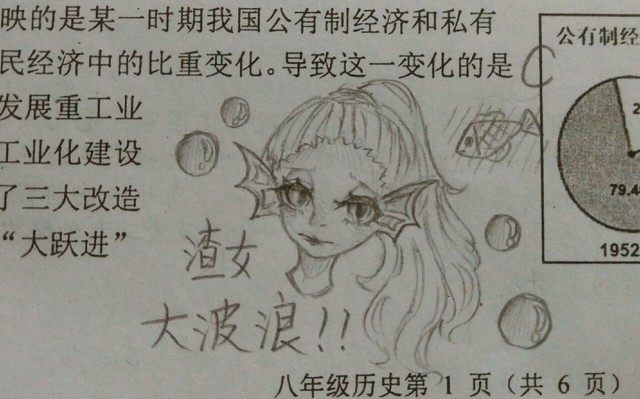 映的是某一时期我国公有制经济和私有
民经济中的比重变化。导致这一变化的是 C
发展重工业
工业化建设
了三大改造
“大跃进”
公有制经
2
79.4
1952
渣女
大波浪!!
八年级历史第 1 页（共 6 页）